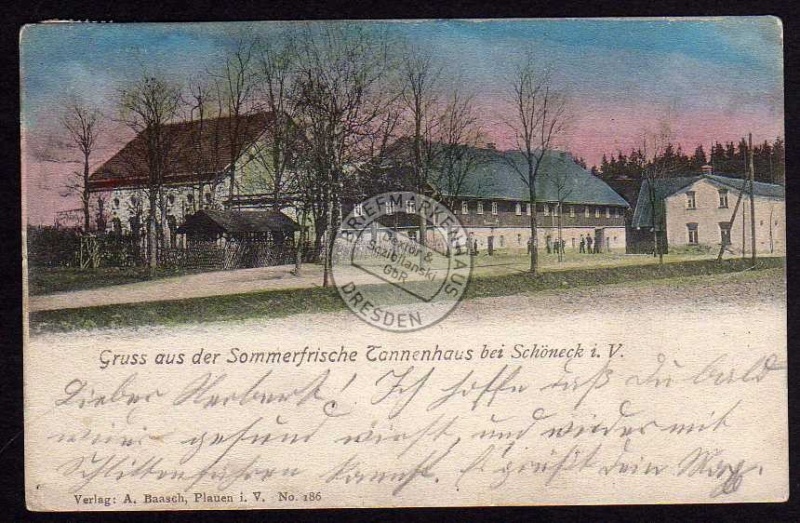 BRIEFMARKENHAUS
Dexler &
Szibilanski
GbR
DRESDEN
Gruss aus der Sommerfrische Tannenhaus bei Schöneck i. V.
Lieber Herbert! Ich hoffe daß Du bald
wieder gesund wirst, und wieder mit
Schlittenfahren kannst. Es grüßt dein Max.
Verlag: A. Baasch, Plauen i. V. No. 186